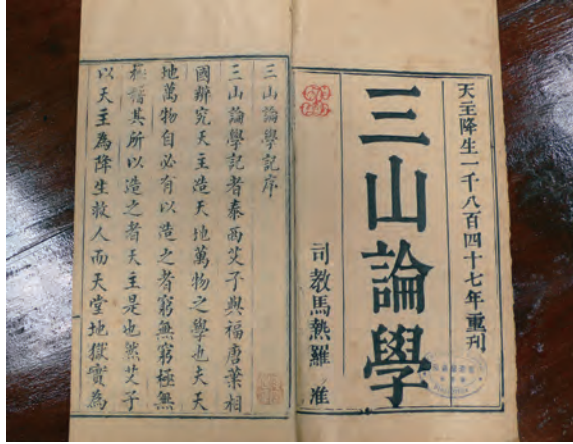 天主降生一千八百四十七年重刊
三山論學
司教馬熱羅 准
三山論學記序
三山論學記者泰西艾子與福唐葉相
國辨究天主造天地萬物之學也夫天
地萬物自必有以造之者窮無窮極無
極譜其所以造之者天主是也然艾子
以天主為降生救人而天堂地獄實為